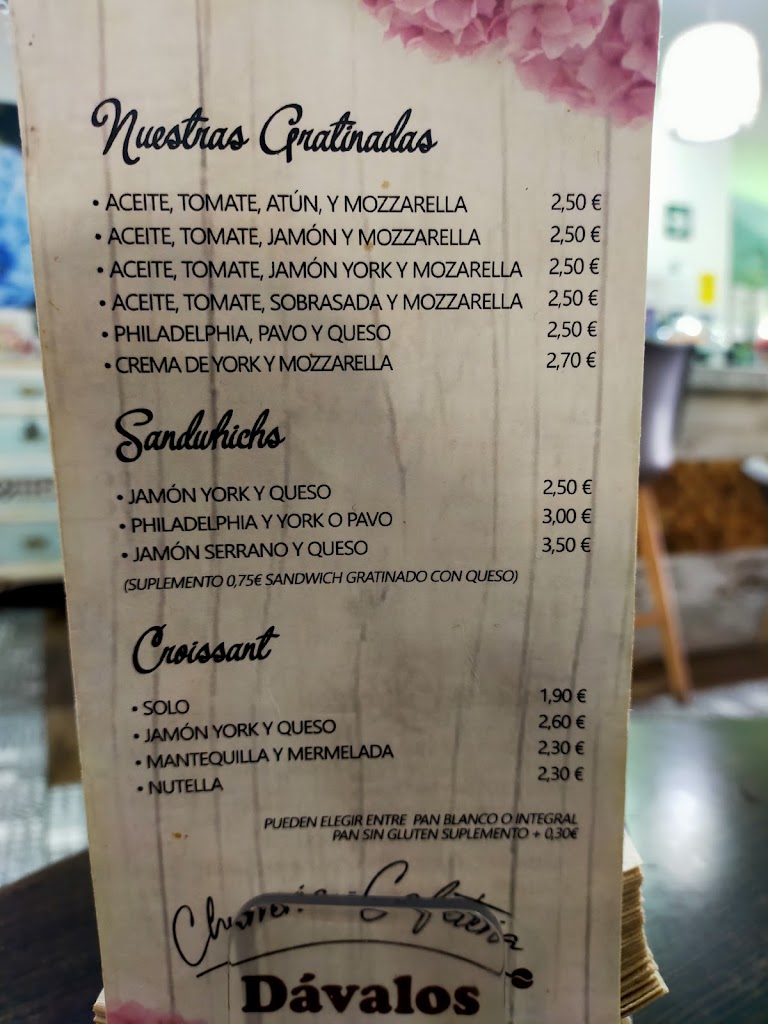 Nuestras Gratinadas
• ACEITE, TOMATE, ATÚN, Y MOZZARELLA 2,50 €
• ACEITE, TOMATE, JAMÓN Y MOZZARELLA 2,50 €
• ACEITE, TOMATE, JAMÓN YORK Y MOZARELLA 2,50 €
• ACEITE, TOMATE, SOBRASADA Y MOZZARELLA 2,50 €
• PHILADELPHIA, PAVO Y QUESO 2,50 €
• CREMA DE YORK Y MOZZARELLA 2,70 €
Sanduhichs
• JAMÓN YORK Y QUESO 2,50 €
• PHILADELPHIA Y YORK O PAVO 3,00 €
• JAMÓN SERRANO Y QUESO 3,50 €
(SUPLEMENTO 0,75€ SANDWICH GRATINADO CON QUESO)
Croissant
• SOLO 1,90 €
• JAMÓN YORK Y QUESO 2,60 €
• MANTEQUILLA Y MERMELADA 2,30 €
• NUTELLA 2,30 €
PUEDEN ELEGIR ENTRE PAN BLANCO O INTEGRAL
PAN SIN GLUTEN SUPLEMENTO + 0,30€
Churrería - Cafetería
Dávalos